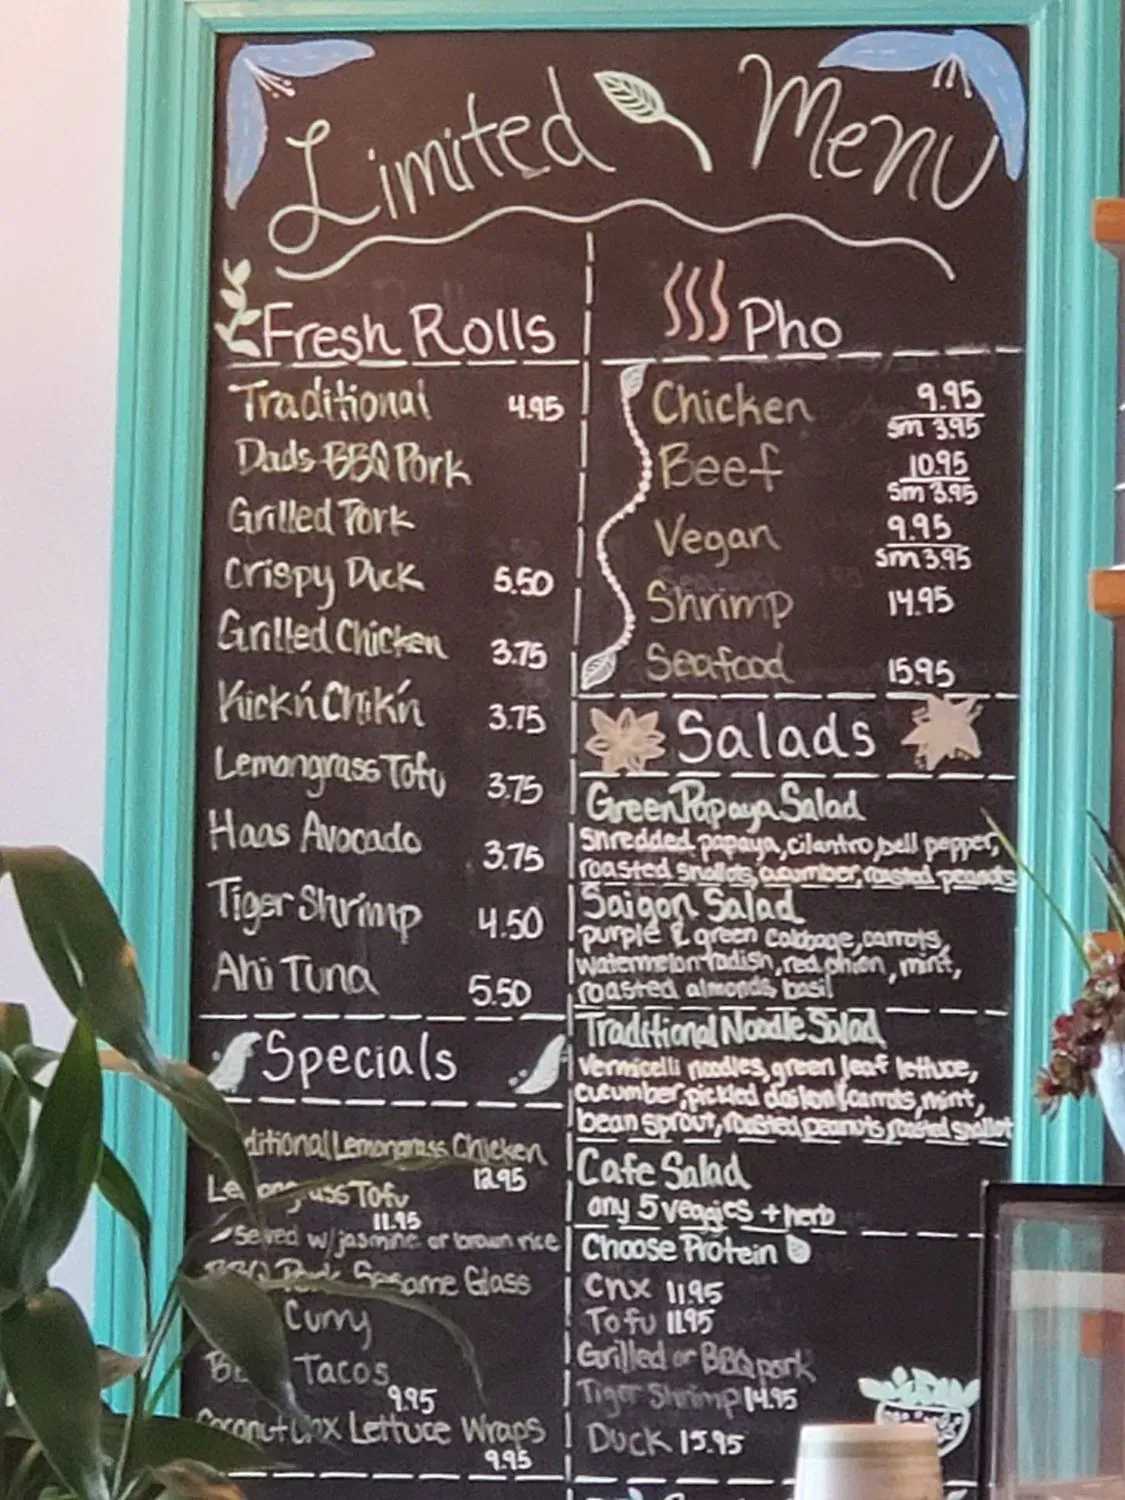 Limited Menu
Fresh Rolls
Traditional 4.95
Dads BBQ Pork
Grilled Pork
Crispy Duck 5.50
Grilled Chicken 3.75
Kick'n Chik'n 3.75
Lemongrass Tofu 3.75
Haas Avocado 3.75
Tiger Shrimp 4.50
Ahi Tuna 5.50
Specials
ditional Lemongrass Chicken
12.95
Tofu
11.95
Served w/jasmine or brown rice
BBQ Pork Sesame Glass
Curry
Tacos
9.95
Lettuce Wraps
9.95
Pho
Chicken 9.95
sm 3.95
Beef 10.95
sm 3.95
Vegan 9.95
sm 3.95
Shrimp 14.95
Seafood 15.95
Salads
Green Papaya Salad
shredded papaya, cilantro, bell pepper,
roasted shallots, cucumber, roasted peanuts
Saigon Salad
purple & green cabbage, carrots,
watermelon radish, red onion, mint,
roasted almonds, basil
Traditional Noodle Salad
vermicelli noodles, green leaf lettuce,
cucumber, pickled daikon/carrots, mint,
bean sprout, roasted peanuts, roasted shallot
Cafe Salad
any 5 veggies + herb
Choose Protein
Chx 11.95
Tofu 11.95
Grilled or BBQ pork
Tiger Shrimp 14.95
Duck 15.95